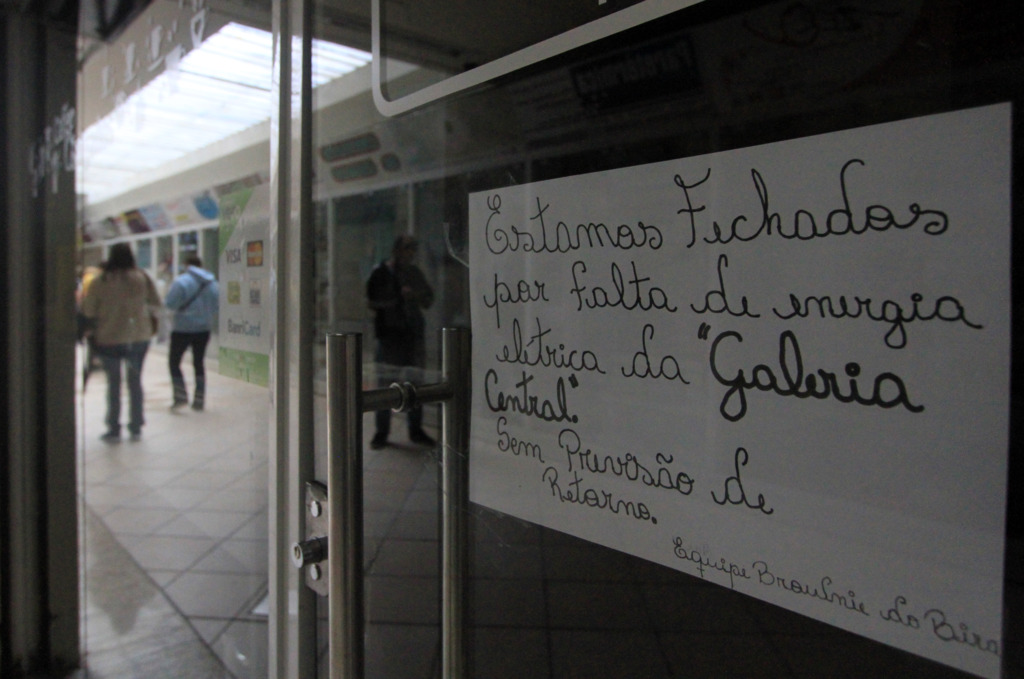 VISA
BanriCard
Estamos Fechados
por falta de energia
elétrica da "Galeria
Central".
Sem Previsão de
Retorno.
Equipe